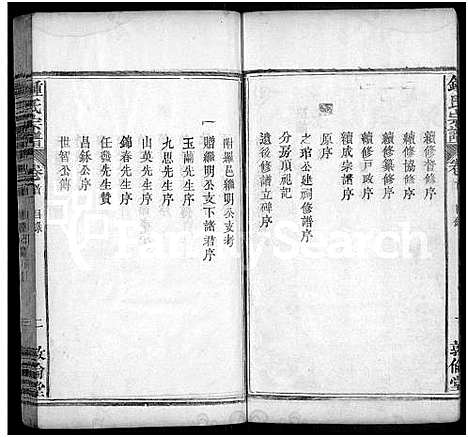 鍾氏宗譜
卷首
續修督修序
續修協修序
續修纂修序
續修戶政序
續成宗譜序
之琯公建祠修譜序
分房頂祀記
遺後修譜立碑序
敦倫堂
附羅邑繼明公支考
贈繼明公支下諸君序
玉蘭先生序
九思先生序
山英先生序
錦春先生序
任衡先生贊
昌錸公序
世智公傳
鍾氏宗譜
卷首
目錄
二
敦倫堂
FamilySearch